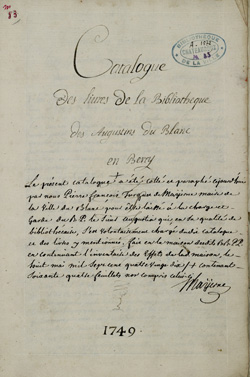 83
BIBLIOTHEQUE
Catalogue
Des livres De la Bibliotheque
des Augustins du Blanc
en Berry
Le présent catalogue a été cotté et paraphé
par nous Pierre François Turquin de Marjone maire de
la Ville du Blanc pour être laissé à la charge et
Garde du R P. en sa qualité de
bibliothécaire, s'en volontairement chargé dudit catalogue
et des livres y mentionnés, fait en la maison desdits R.P.
en continuant l'inventaire des Effets de lad maison, le
huit mai mil sept cent quatre vingt dix contenant
Soixante quatre feuillets non compris celui-ci
1749.